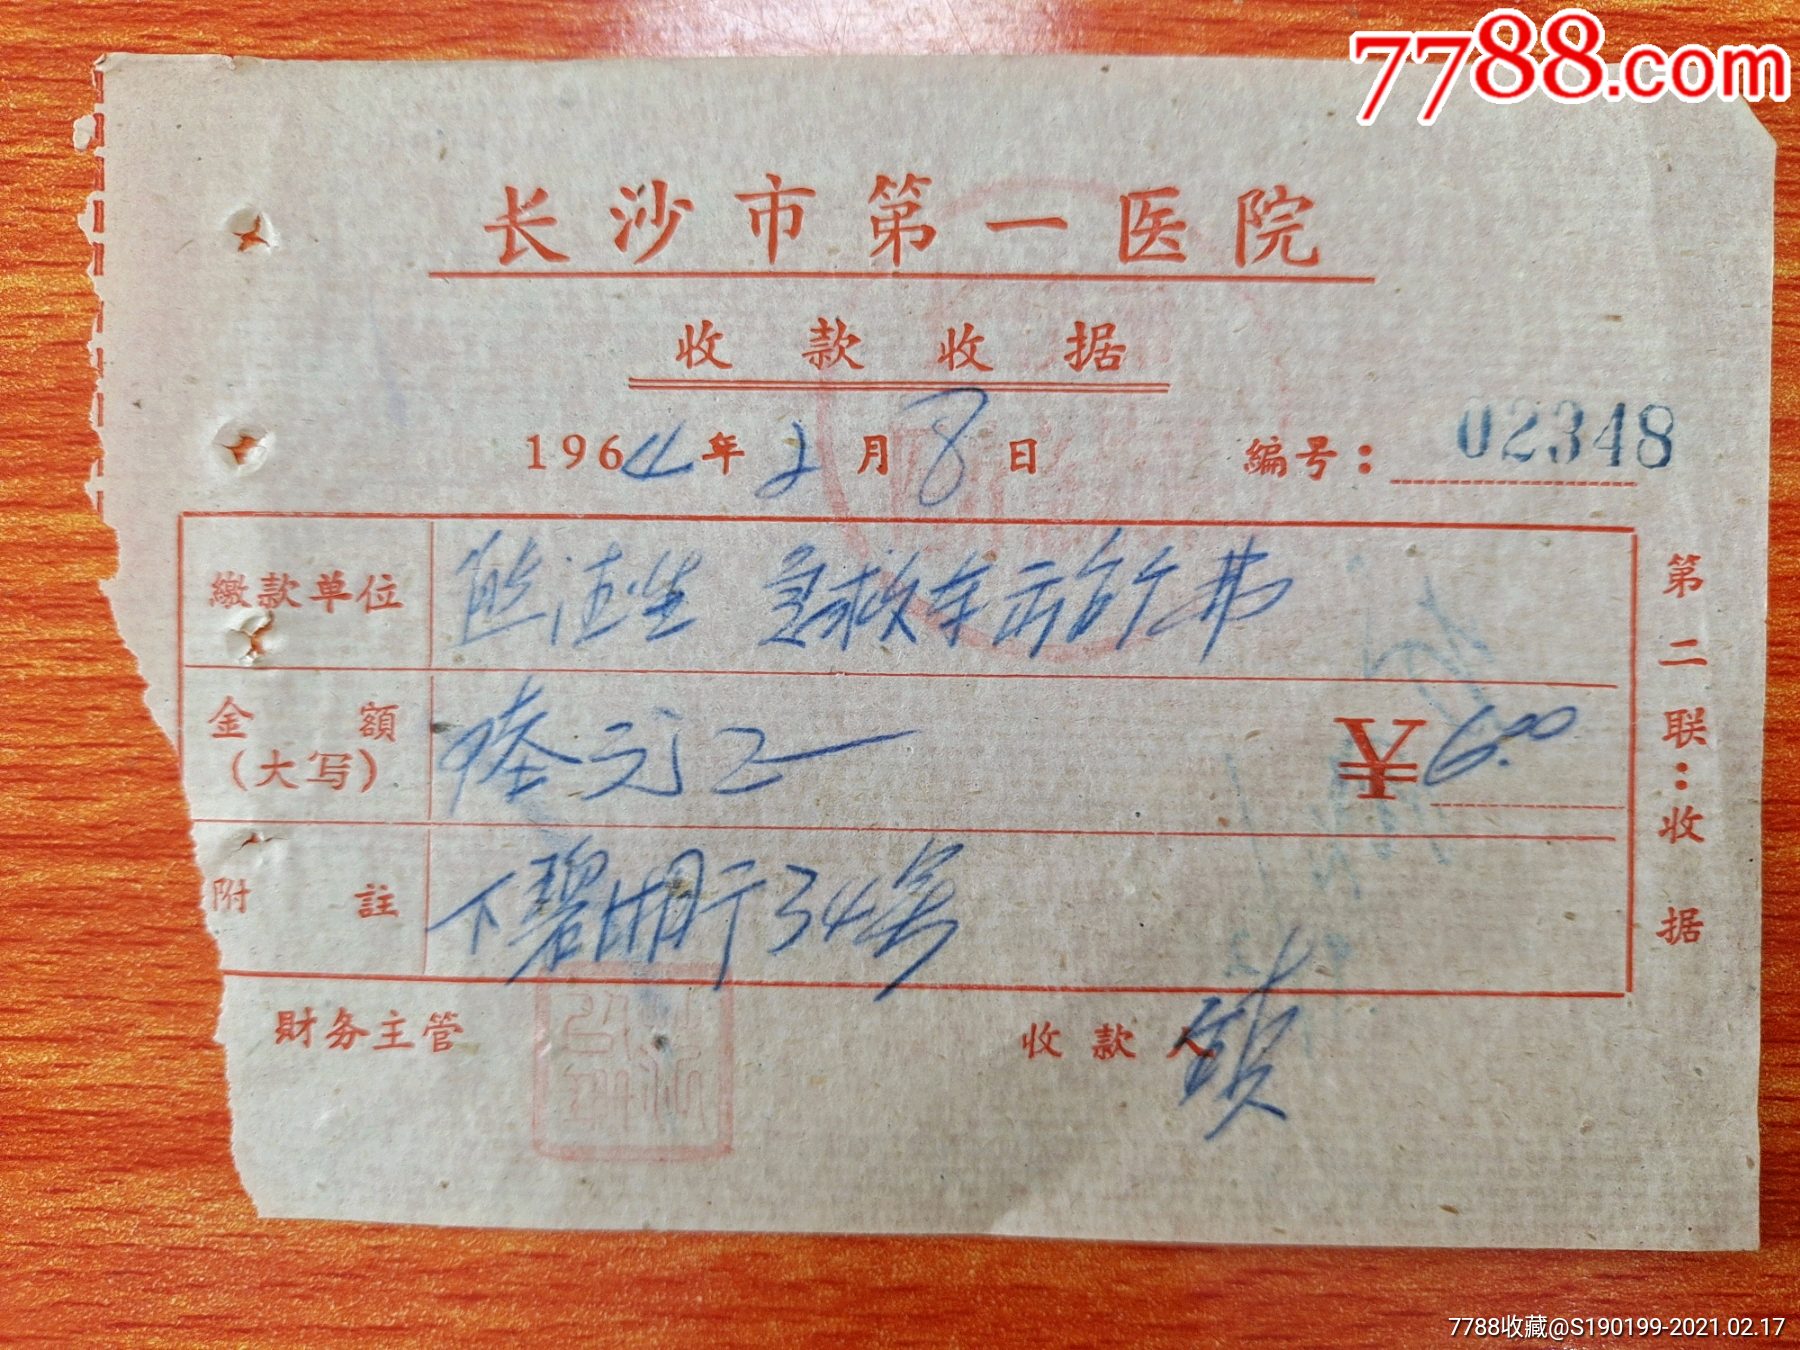 7788.com
长沙市第一医院
收款收据
1964年2月8日 编号：02348
繳款单位 熊 生 急救车 费
金额（大写） 陸元正 ￥6.00
附註 下碧湘 34号
財务主管 收款人
第二联：收据
7788收藏@S190199-2021.02.17